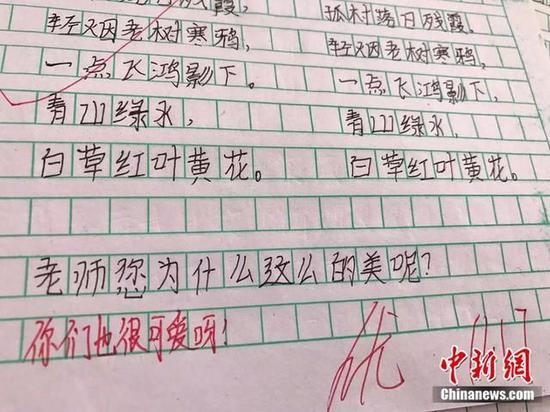 残霞,
轻烟老树寒鸦,
一点飞鸿影下。
青山绿水,
白草红叶黄花。
孤村落日残霞,
轻烟老树寒鸦,
一点飞鸿影下,
青山绿水,
白草红叶黄花。
老师您为什么这么的美呢?
你们也很可爱呀!
优
11.17
中新网
Chinanews.com